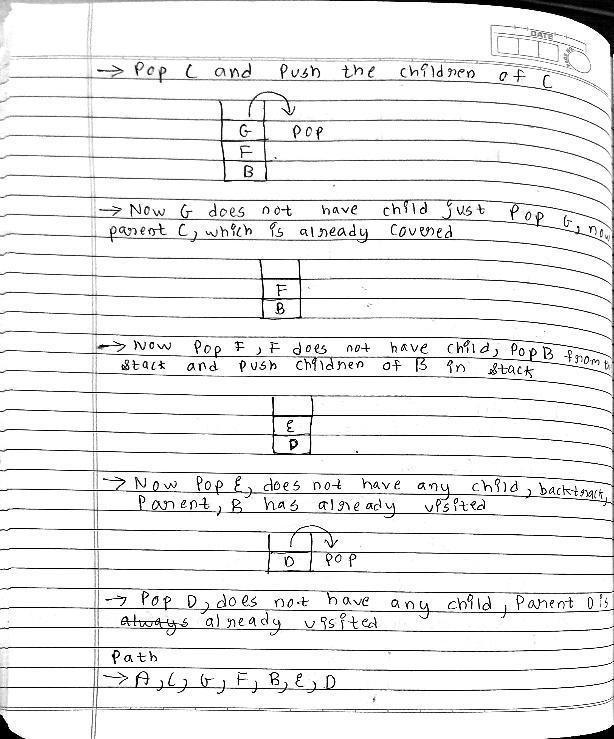 DATE
→ Pop C and Push the children of C
G POP
F
B
→ Now G does not have child just Pop G, now
parent C, which is already Covered
F
B
→ Now Pop F, F does not have child, Pop B from
stack and push children of B in stack
E
D
→ Now Pop E, does not have any child, backtrack,
Parent, B has already visited
D POP
→ Pop D, does not have any child, Parent D is
always already visited
Path
→ A, C, G, F, B, E, D